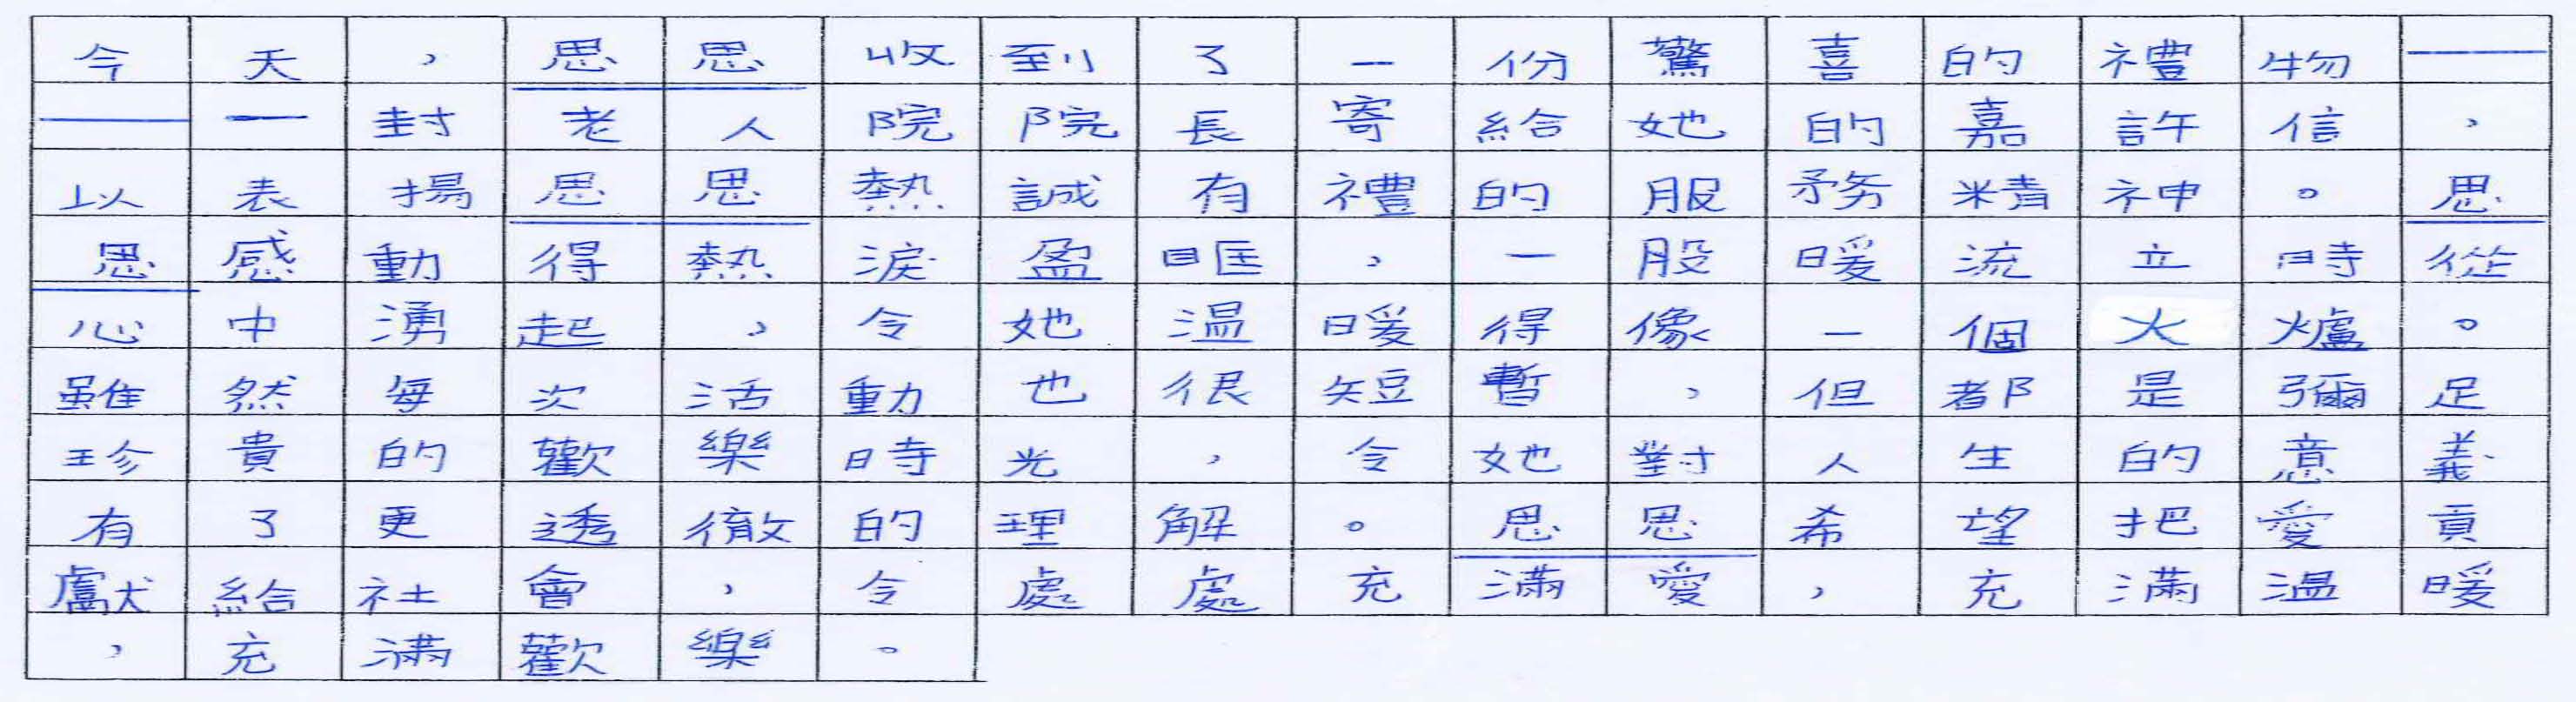 今天，思思收到了一份驚喜的禮物—
—一封老人院院長寄給她的嘉許信，
以表揚思思熱誠有禮的服務精神。思
思感動得熱淚盈眶，一股暖流立時從
心中湧起，令她温暖得像一個火爐。
雖然每次活動也很短暫，但都是彌足
珍貴的歡樂時光，令她對人生的意義
有了更透徹的理解。思思希望把愛貢
獻給社會，令處處充滿愛，充滿温暖
，充滿歡樂。